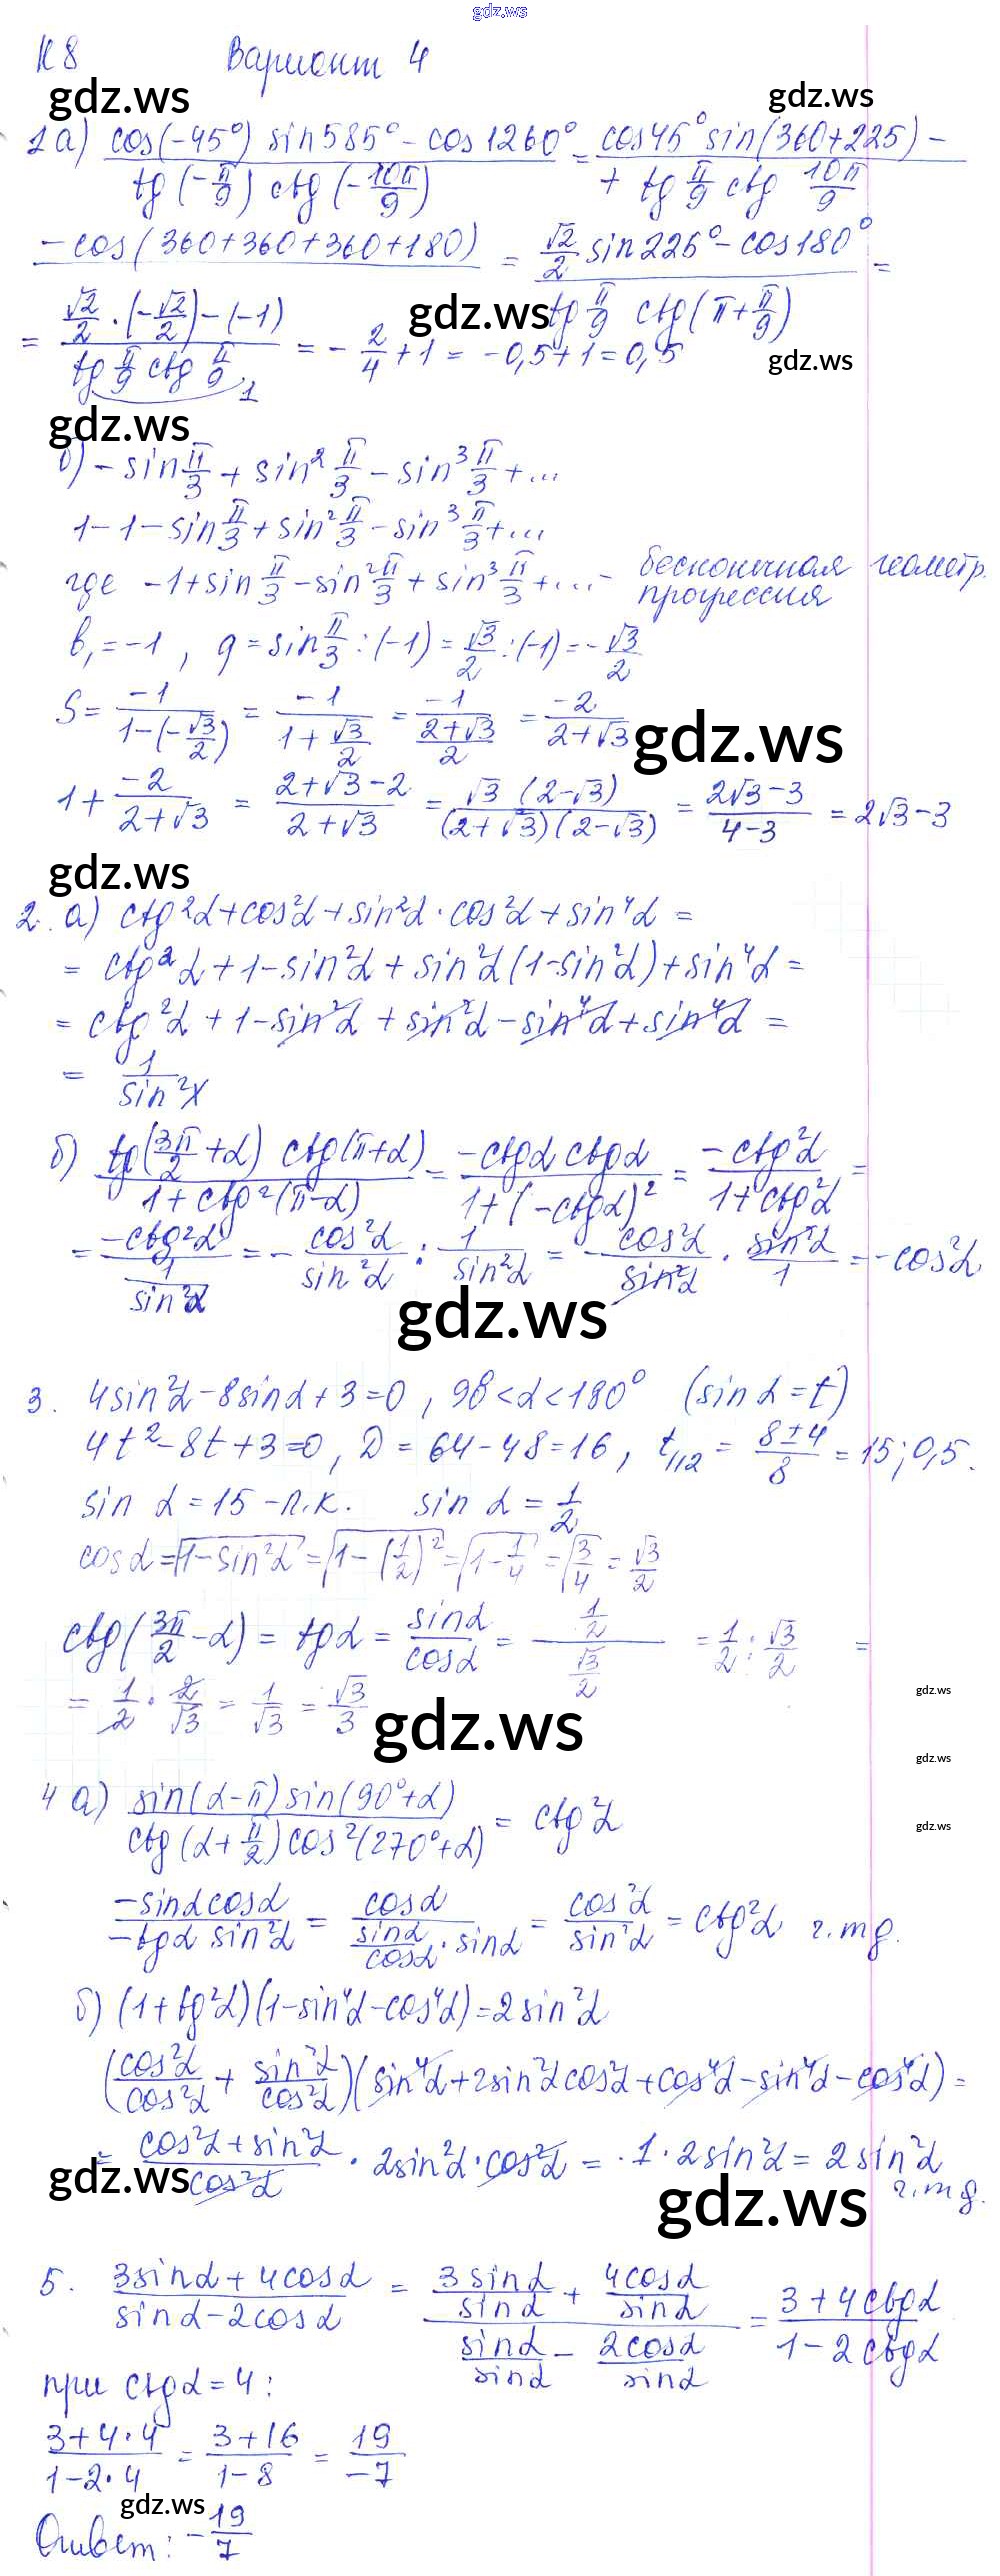 gdz.ws
К8 Вариант 4
gdz.ws gdz.ws
1 а) cos(-45°) sin585° - cos1260° / tg(-π/9) ctg(-10π/9) = cos45° sin(360+225) - / + tg π/9 ctg 10π/9
-cos(360+360+360+180) = √2/2 sin225° - cos180° / tg π/9 ctg(π+π/9) =
= √2/2 · (-√2/2) - (-1) / tg π/9 ctg π/9 = - 2/4 + 1 = -0,5+1 = 0,5
1
gdz.ws
gdz.ws
gdz.ws
б) - sin π/3 + sin² π/3 - sin³ π/3 + ...
1 - 1 - sin π/3 + sin² π/3 - sin³ π/3 + ...
где -1 + sin π/3 - sin² π/3 + sin³ π/3 + ... - бесконечная геометр.
прогрессия
b₁ = -1 , q = sin π/3 : (-1) = √3/2 : (-1) = - √3/2
S = -1 / 1-(-√3/2) = -1 / 1+√3/2 = -1 / 2+√3/2 = -2 / 2+√3
gdz.ws
1 + -2 / 2+√3 = 2+√3-2 / 2+√3 = √3 (2-√3) / (2+√3)(2-√3) = 2√3-3 / 4-3 = 2√3-3
gdz.ws
2. а) ctg²α + cos²α + sin²α · cos²α + sin⁴α =
= ctg²α + 1 - sin²α + sin²α(1-sin²α) + sin⁴α =
= ctg²α + 1 - sin²α + sin²α - sin⁴α + sin⁴α =
= 1 / sin²x
б) tg(3π/2 + α) ctg(π+α) / 1+ctg²(π-α) = -ctgα ctgα / 1+(-ctgα)² = -ctg²α / 1+ctg²α =
= -ctg²α / 1/sin²α = - cos²α/sin²α : 1/sin²α = - cos²α/sin²α · sin²α/1 = -cos²α
gdz.ws
3. 4sin²α - 8sinα + 3 = 0 , 90<α<180° (sin α = t)
4t² - 8t + 3 = 0 , D = 64 - 48 = 16 , t₁,₂ = 8±4 / 8 = 15; 0,5.
sin α = 15 - п.к. sin α = 1/2
cosα = √1-sin²α = √1-(1/2)² = √1-1/4 = √3/4 = √3/2
ctg(3π/2 - α) = tgα = sinα/cosα = 1/2 / √3/2 = 1/2 : √3/2 =
= 1/2 · 2/√3 = 1/√3 = √3/3
gdz.ws
gdz.ws
gdz.ws
gdz.ws
4 а) sin(α-π) sin(90°+α) / ctg(α+π/2) cos²(270°+α) = ctg²α
-sinα cosα / -tgα sin²α = cosα / sinα/cosα · sinα = cos²α/sin²α = ctg²α ч.тд.
б) (1+tg²α)(1-sin⁴α-cos⁴α) = 2sin²α
(cos²α/cos²α + sin²α/cos²α)(sin⁴α+2sin²α cos²α+cos⁴α-sin⁴α-cos⁴α) =
= cos²α+sin²α / cos²α · 2sin²α · cos²α = · 1 · 2sin²α = 2sin²α
ч.тд.
gdz.ws
gdz.ws
5. 3sinα+4cosα / sinα-2cosα = 3sinα/sinα + 4cosα/sinα / sinα/sinα - 2cosα/sinα = 3+4ctgα / 1-2ctgα
при ctgα = 4 :
3+4·4 / 1-2·4 = 3+16 / 1-8 = 19 / -7
gdz.ws
Ответ: - 19/7